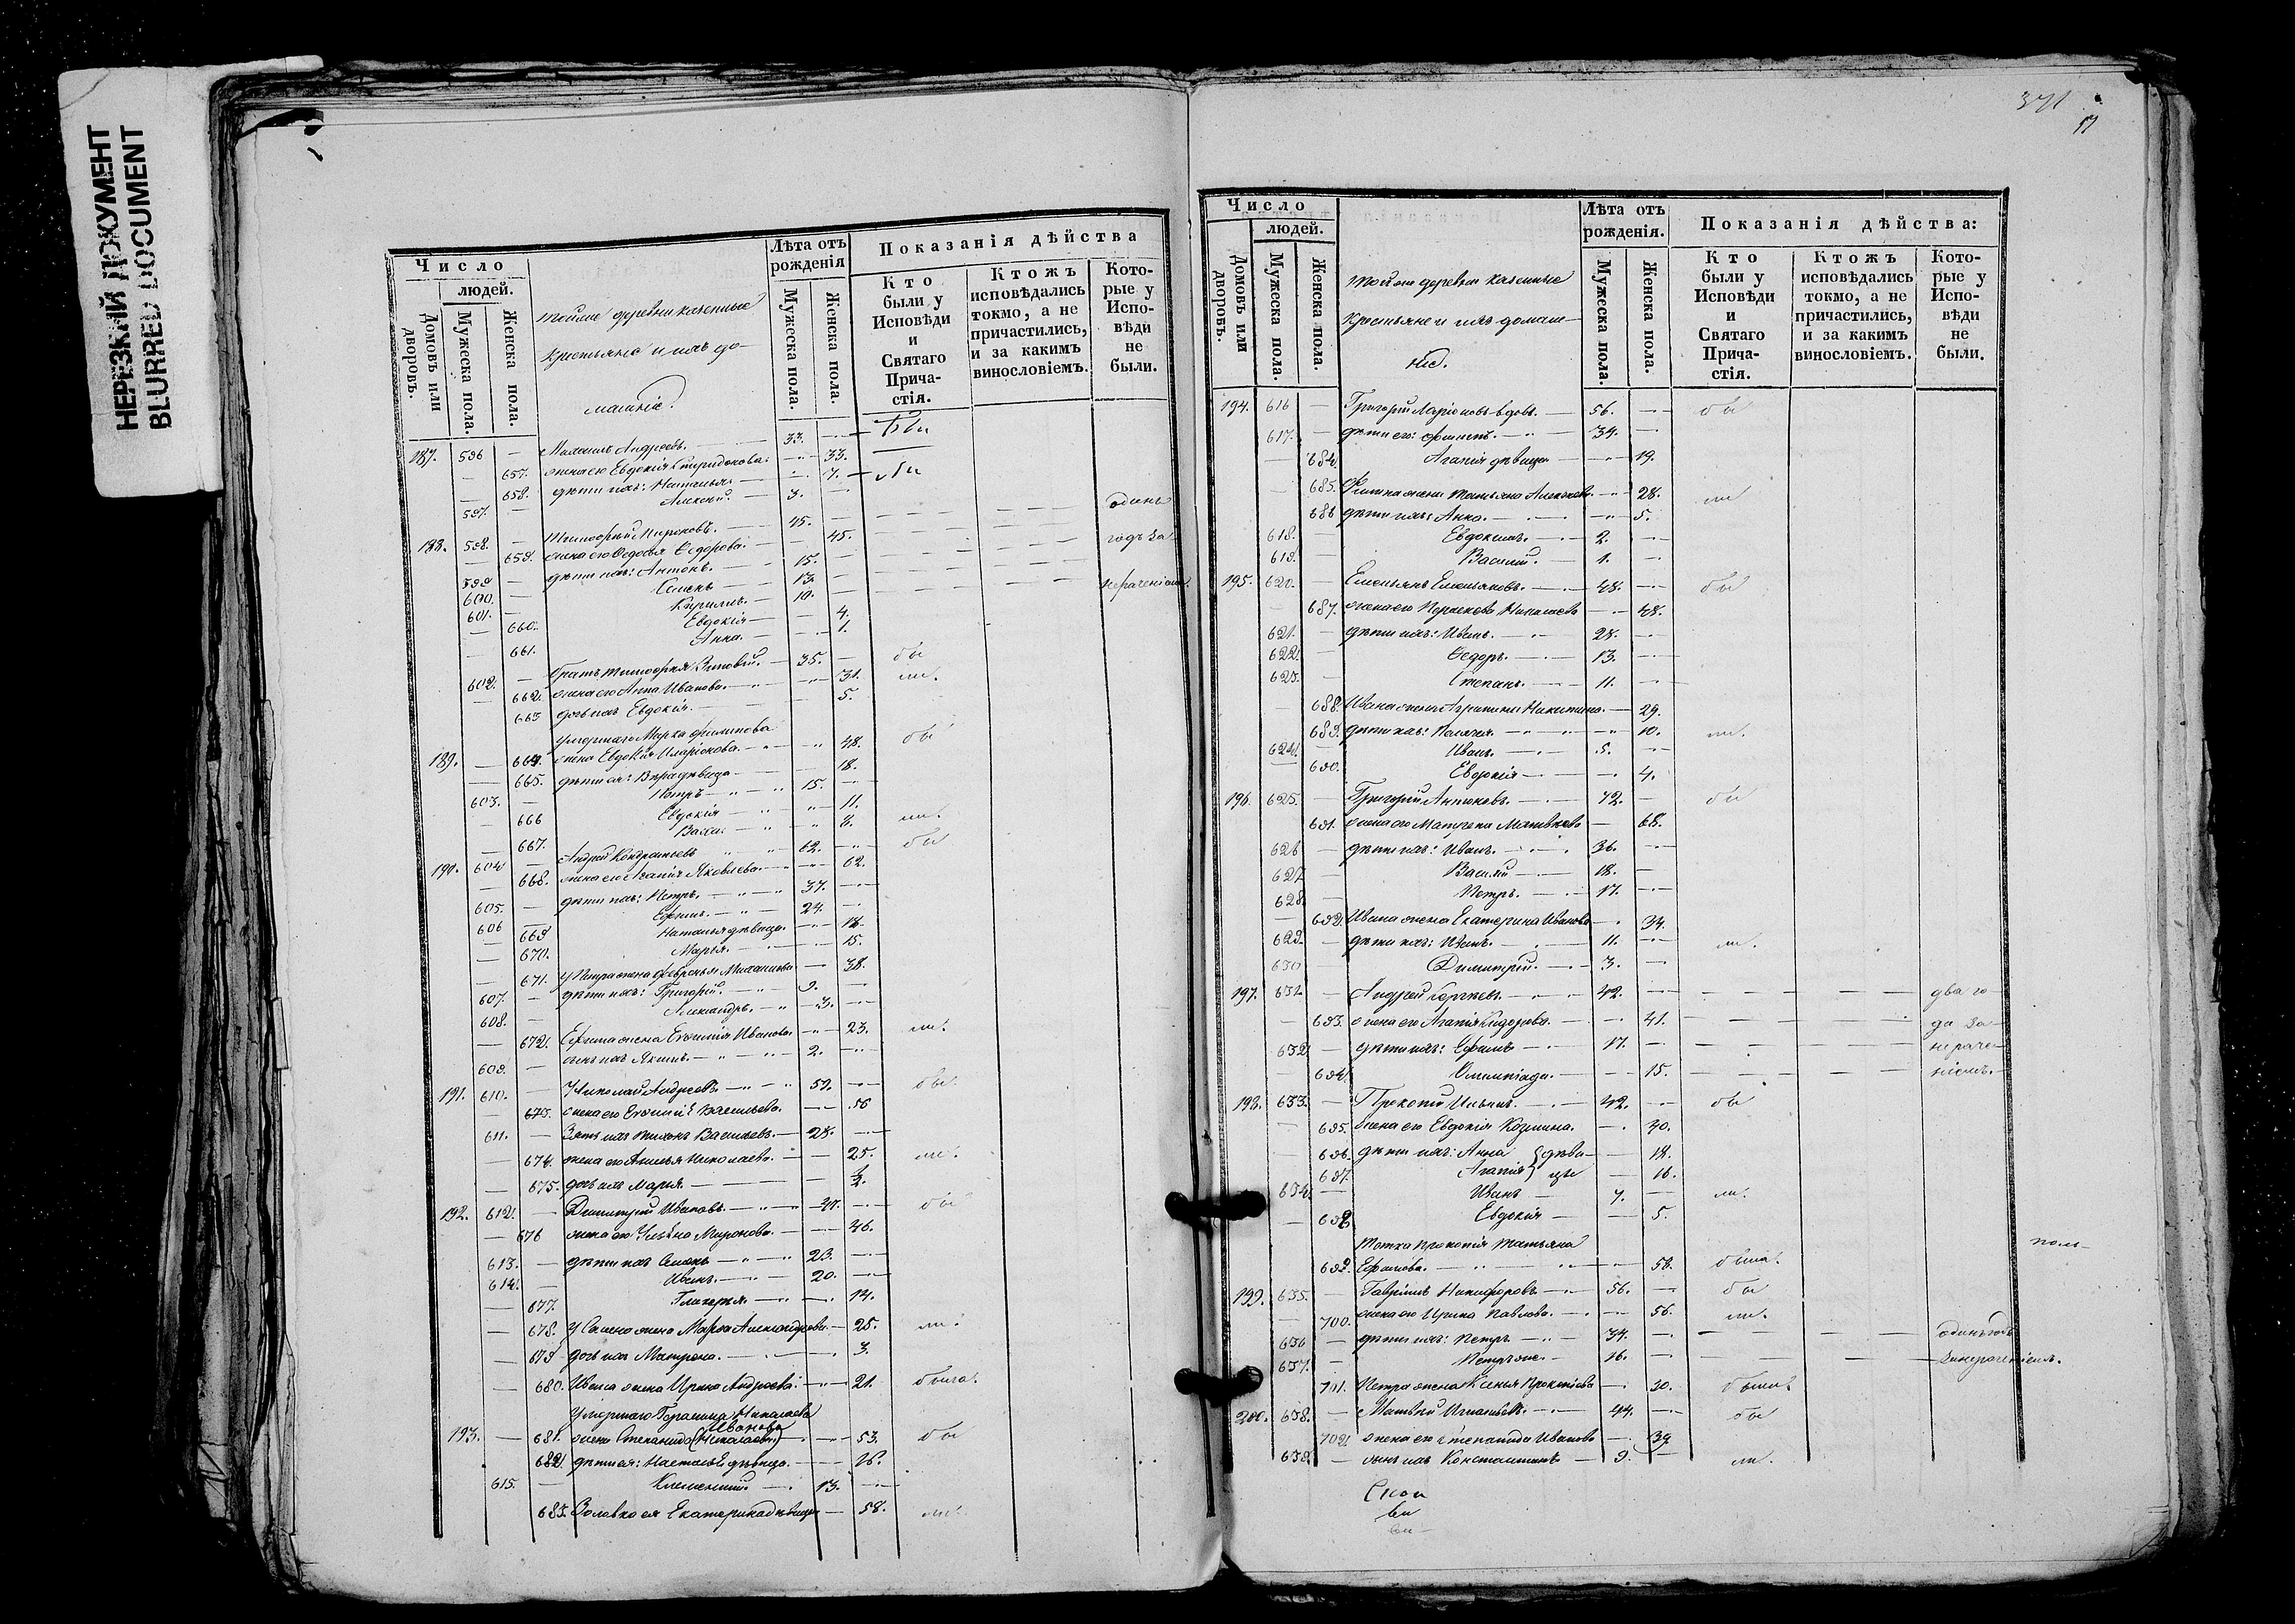 НЕРЕЗКИЙ ДОКУМЕНТ
BLURRED DOCUMENT
Число
людей.
Домовъ или дворовъ.
Мужеска пола.
Женска пола.
Тойже деревни казенные
крестьяне и ихъ до-
машніе.
Лѣта отъ рожденія
Мужеска пола.
Женска пола.
Показанія дѣйства
Кто были у Исповѣди и Святаго Прича-стія.
Ктожъ исповѣдались токмо, а не причастились, и за какимъ винословіемъ.
Кото-рые у Испо-вѣди не были.
187. 596 — Михаилъ Андреевъ. — 33. — Бы
— 657. жена его Евдокія Спиридонова. — 33.
— 658. дѣти ихъ: Наталья — 7. — ли
597. — Алексій. — 3. —
188. 598. — Тимофей Мироновъ. — 45. — одинъ
— 659. жена его Ѳедосья Ѳедорова. — 45. — годъ за
599 — дѣти ихъ: Антонъ. — 15.
600. — Семенъ — 13. — нераченіемъ
601. — Кирилъ. — 10.
— 660. Евдокія — 4.
— 661. Анна. — 1.
602. — братъ Тимофея Зиновій. — 35. — бы
— 662. жена его Анна Иванова. — 31. ли.
663 дочь ихъ Евдокія. — 5.
умершаго Марка Филипова
189. — 664. жена Евдокія Иларіонова. — 48. бы
— 665. дѣти ея: Вера дѣвица — 18.
603. — Петръ — 15. —
— 666 Евдокія — 11.
— 667. Васса. — 8. ли.
190. 604 — Андрей Кондратьевъ — 62. — бы
— 668. жена его Агапія Яковлева. — 62.
605. — дѣти ихъ: Петръ. — 37. —
606 — Ефимъ. — 24. —
— 669 Наталья дѣвица. — 18.
— 670. Марья. — 15.
— 671. у Петра жена Февронья Михайлова — 38.
607. — дѣти ихъ: Григорій. — 9. —
608. — Александръ. — 3. —
— 672. Ефима жена Евфимія Иванова. — 23. ли.
609. — сынъ ихъ Якимъ. — 2. —
191. 610. — Николай Андреевъ. — 59. — бы
— 673. жена его Евфимія Васильева. — 56
611. — Зять ихъ Тихонъ Васильевъ. — 28. —
— 674. жена его Николаева. — 25. ли.
— 675. дочь ихъ Марья. — ½.
192. 612. — Димитрій Ивановъ. — 47. — бы
— 676 жена его Ульяна Миронова. — 46.
613. — дѣти ихъ Семенъ — 23. —
614. — Иванъ. — 20. —
— 677. Гликерья. — 14.
— 678. у Семена жена Марѳа Александрова. — 25. ли.
— 679 дочь ихъ Матрена. — 3.
— 680. Ивана жена Ирина Андреева. — 21. была.
умершаго Герасима Николаева
Иванова
193. — 681. жена Степанида (Николаева) — 53. бы
682. дѣти ея: Наталья дѣвица. — 26.
615. — Климентій. — 13. —
683. Золовка ея Екатерина дѣвица — 58. ли.
371
17
Число
людей.
Домовъ или дворовъ.
Мужеска пола.
Женска пола.
Тойже деревни казенные
крестьяне и ихъ домаш-
ніе.
Лѣта отъ рожденія.
Мужеска пола.
Женска пола.
Показанія дѣйства:
Кто были у Исповѣди и Святаго Прича-стія.
Ктожъ исповѣдались токмо, а не причастились, и за какимъ винословіемъ.
Кото-рые у Испо-вѣди не были.
194. 616 — Григорій Ларіоновъ вдовъ. — 56. — бы
617. — дѣти его: Филипъ. — 34. —
— 684. Агапія дѣвица — 19.
— 685. Филипа жена Татьяна Алексѣева. — 28. ли
686 дѣти ихъ: Анна. — 5.
618. — Евдокимъ. — 2. —
619. — Василій. — 1. —
195. 620. — Емельянъ Емельяновъ. — 48. — бы
— 687. жена его Парасковья Николаева — 48.
621. — дѣти ихъ: Иванъ. — 28. —
622. — Ѳедоръ. — 13. —
623. — Степанъ. — 11. —
— 688. Ивана жена Агрипина Никитина. — 29.
— 689. дѣти ихъ: Пелагея. — 10. ли.
624. — Иванъ. — 5. —
— 690. Евдокія — 4.
196. 625. — Григорій Антоновъ. — 72. — бы
— 691. жена его Матрена Матвѣева — 68.
626 — дѣти ихъ: Иванъ. — 36. —
627 — Василій — 18. —
628. — Петръ. — 17. —
— 692. Ивана жена Екатерина Иванова — 34.
629. — дѣти ихъ: Иванъ. — 11. — ли.
630 — Димитрій. — 3. —
197. 631. — Андрей Сергѣевъ. — 42. — два го-
— 693. жена его Агапія Сидорова. — 41. — да за-
632. — дѣти ихъ: Ефимъ — 17. — нераче-
— 694. Олимпіада. — 15. — ніемъ.
198. 633. — Прокопій Ильинъ. — 42. — бы
— 695. жена его Евдокія Козмина. — 40.
— 696. дѣти ихъ: Анна } дѣви- — 18.
— 697. Агапія } цы — 16.
634. — Иванъ — 7. — ли.
— 698. Евдокія — 5.
Тотка Прокопія Татьяна
699. Ефимова. — 58. была.
199. 635. — Гавріилъ Никифоровъ — 56. — бы
— 700. жена его Ирина Павлова. — 56. ли.
636 — дѣти ихъ: Петръ — 34. — одинъ годъ
637. — Петръ же. — 16. — за нераченіемъ.
701. Петра жена Ксенья Прокопіева — 30. была.
200. 638. — Матвѣй Игнатьевъ. — 44. — бы
702. жена его Степанида Иванова — 39
639. — сынъ ихъ Константинъ — 9. — ли.